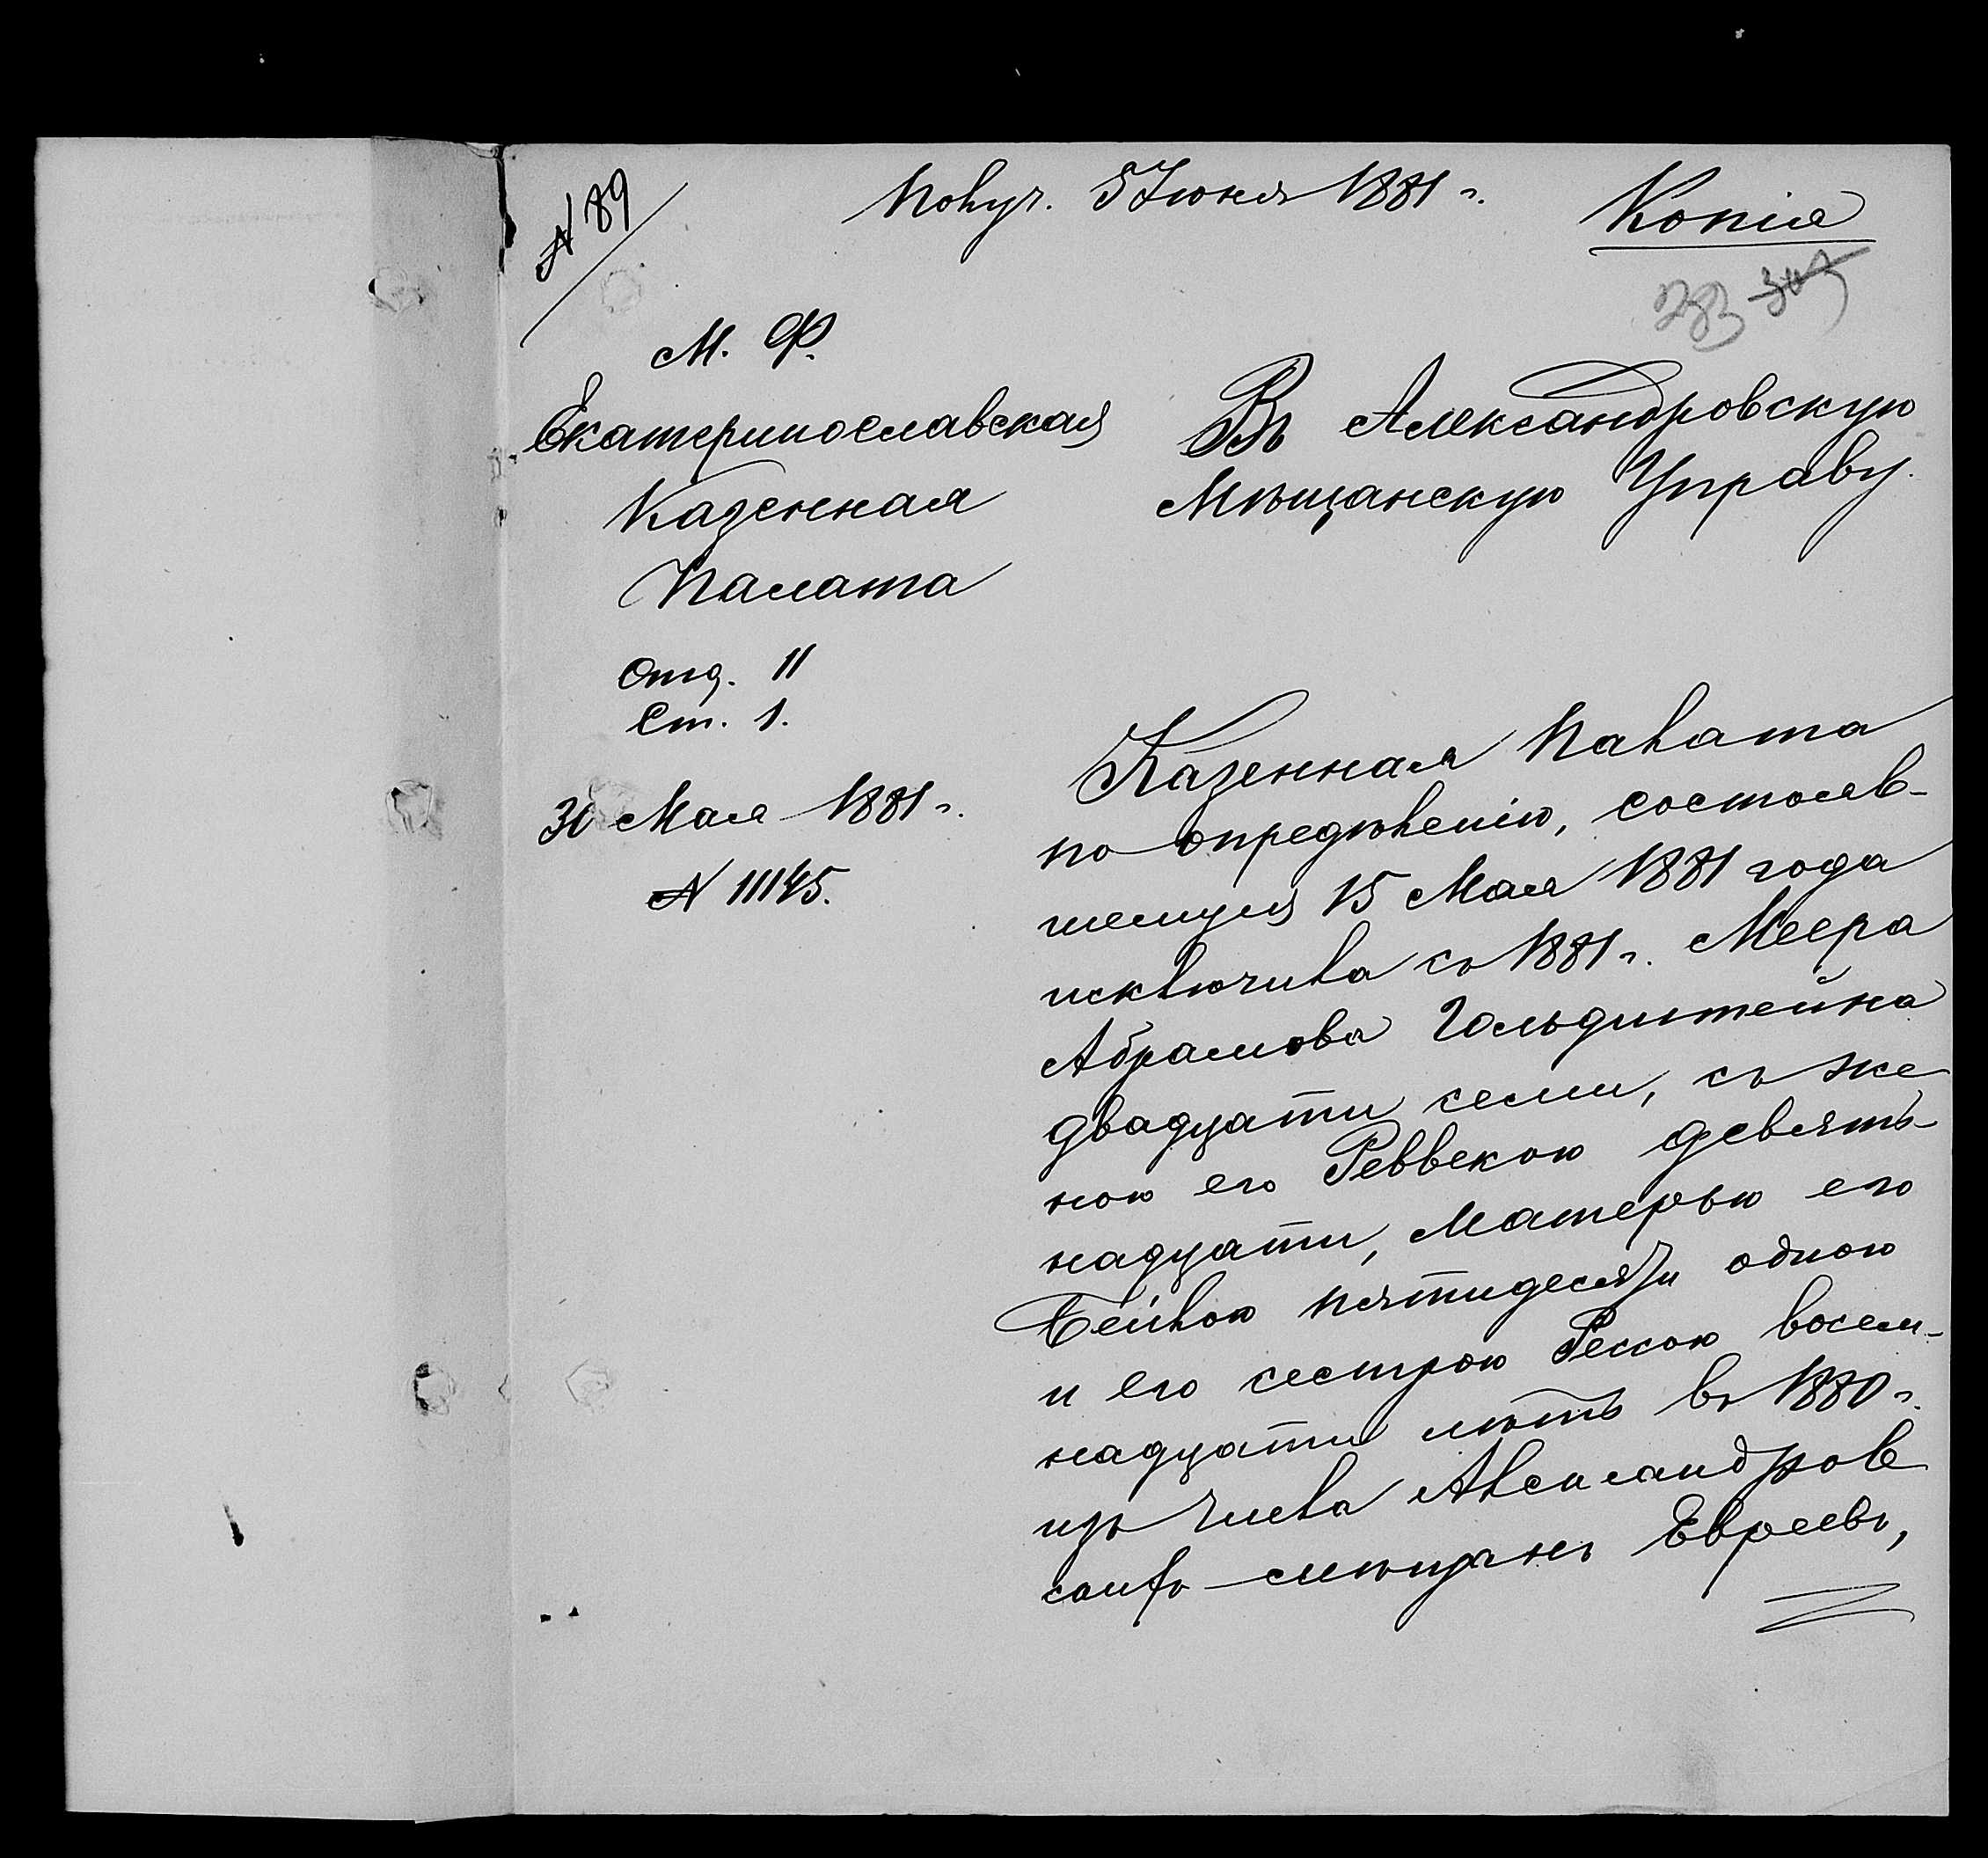 № 89
Получ. 5 Іюня 1881 г.
Копія
283 303
М. Ф.
Екатеринославская
Казенная
Палата
Отд. II
Ст. 1.
30 Мая 1881 г.
№ 11145.
Въ Александровскую
Мѣщанскую Управу.
Казенная Палата
по опредѣленію, состояв-
шемуся 15 Мая 1881 года
исключила съ 1881 г. Меера
Абрамова Гольдштейна
двадцати семи, съ же
ною его Реввекою девять-
надцати, Матерью его
Бейлою пятидесяти одною
и его сестрою Рессою восем-
надцати лѣтъ въ 1880 г.
изъ числа Александров
скихъ мѣщанъ Евреевъ,